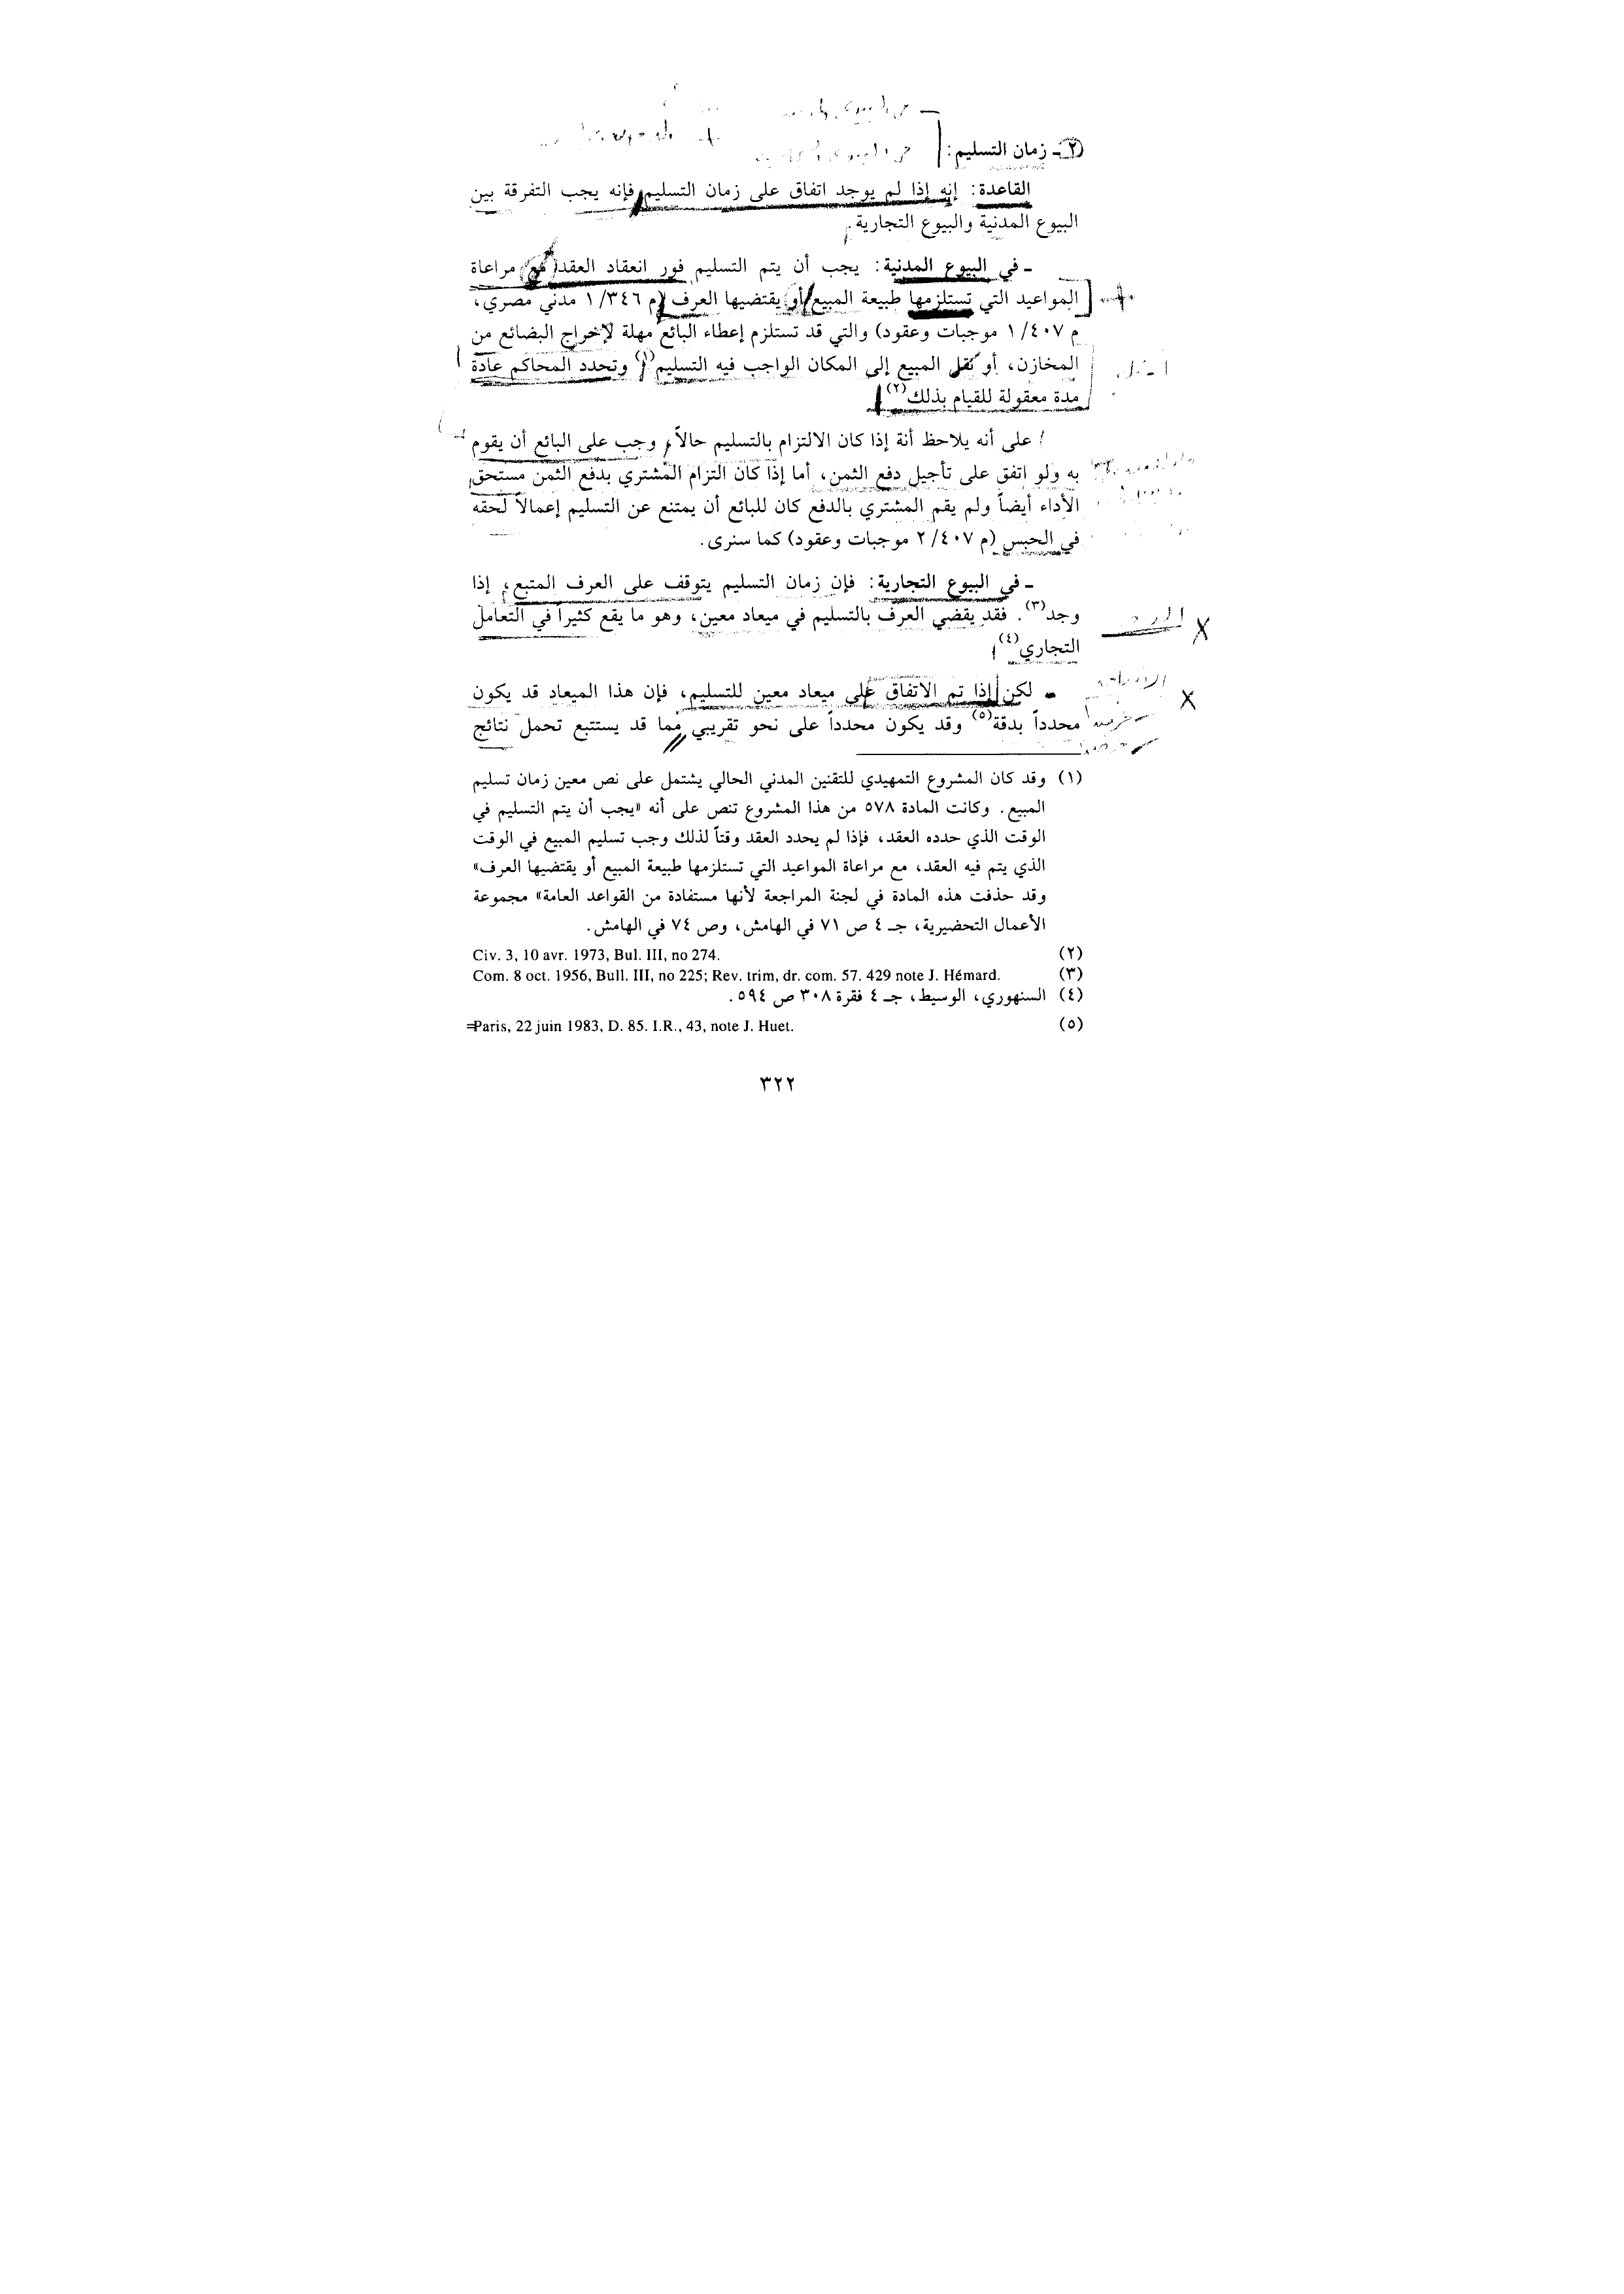 ٢ - زمان التسليم:
القاعدة: إنه إذا لم يوجد اتفاق على زمان التسليم فإنه يجب التفرقة بين
البيوع المدنية والبيوع التجارية.
ـ في البيوع المدنية: يجب أن يتم التسليم فور انعقاد العقد مع مراعاة
المواعيد التي تستلزمها طبيعة المبيع أو يقتضيها العرف (م ٣٤٦/ ١ مدني مصري،
م ٤٠٧/ ١ موجبات وعقود) والتي قد تستلزم إعطاء البائع مهلة لإخراج البضائع من
المخازن، أو نقل المبيع إلى المكان الواجب فيه التسليم(١) وتحدد المحاكم عادة
مدة معقولة للقيام بذلك(٢)
على أنه يلاحظ أنة إذا كان الالتزام بالتسليم حالاً، وجب على البائع أن يقوم
به ولو اتفق على تأجيل دفع الثمن، أما إذا كان التزام المشتري بدفع الثمن مستحق
الأداء أيضاً ولم يقم المشتري بالدفع كان للبائع أن يمتنع عن التسليم إعمالاً لحقه
في الحبس (م ٤٠٧/ ٢ موجبات وعقود) كما سنرى.
ـ في البيوع التجارية: فإن زمان التسليم يتوقف على العرف المتبع، إذا
وجد(٣). فقد يقضي العرف بالتسليم في ميعاد معين، وهو ما يقع كثيراً في التعامل
التجاري(٤)
ـ لكن إذا تم الاتفاق على ميعاد معين للتسليم، فإن هذا الميعاد قد يكون
محدداً بدقة(٥) وقد يكون محدداً على نحو تقريبي مما قد يستتبع تحمل نتائج
(١) وقد كان المشروع التمهيدي للتقنين المدني الحالي يشتمل على نص معين زمان تسليم
المبيع. وكانت المادة ٥٧٨ من هذا المشروع تنص على أنه «يجب أن يتم التسليم في
الوقت الذي حدده العقد، فإذا لم يحدد العقد وقتاً لذلك وجب تسليم المبيع في الوقت
الذي يتم فيه العقد، مع مراعاة المواعيد التي تستلزمها طبيعة المبيع أو يقتضيها العرف»
وقد حذفت هذه المادة في لجنة المراجعة لأنها مستفادة من القواعد العامة» مجموعة
الأعمال التحضيرية، جـ ٤ ص ٧١ في الهامش، وص ٧٤ في الهامش.
(٢) Civ. 3, 10 avr. 1973, Bul. III, no 274.
(٣) Com. 8 oct. 1956, Bull. III, no 225; Rev. trim, dr. com. 57. 429 note J. Hémard.
(٤) السنهوري، الوسيط، جـ ٤ فقرة ٣٠٨ ص ٥٩٤.
(٥) Paris, 22 juin 1983, D. 85. I.R., 43, note J. Huet.=
٣٢٢